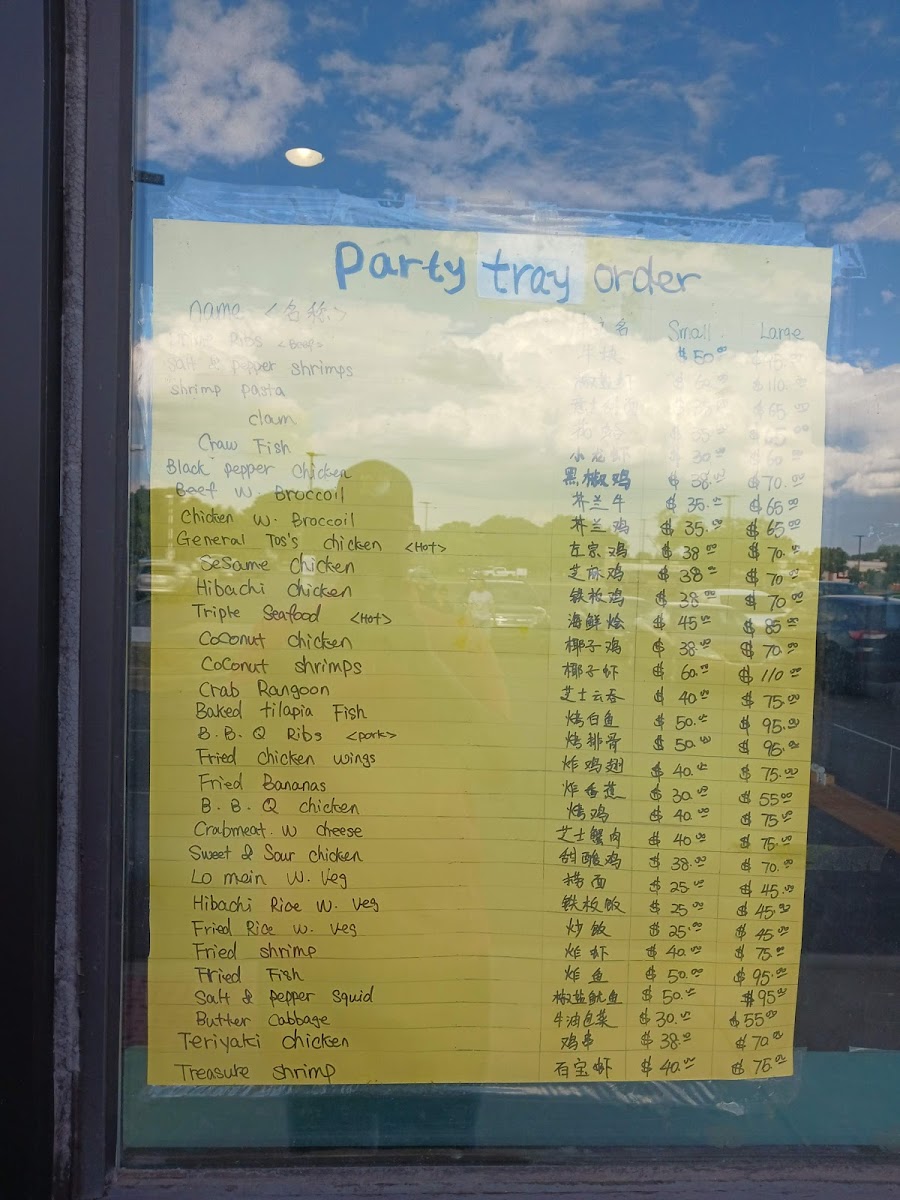 Party tray order
name <名称> 名 Small Large
Ribs <Beef> 牛 $50.00
Salt & pepper shrimps $110.
shrimp pasta $65
clam
Craw Fish $30
Black pepper chicken 黑椒鸡 $38.00 $70.00
Beef w. Broccoil 芥兰牛 $35.00 $65.00
Chicken w. Broccoil 芥兰鸡 $35.00 $65.00
General Tos's chicken <Hot> 左宗鸡 $38.00 $70.00
Sesame chicken 芝麻鸡 $38.00 $70.00
Hibachi chicken 铁板鸡 $38.00 $70.00
Triple Seafood <Hot> 海鲜烩 $45.00 $85.00
Coconut chicken 椰子鸡 $38.00 $70.00
Coconut shrimps 椰子虾 $60.00 $110.00
Crab Rangoon 芝士云吞 $40.00 $75.00
Baked tilapia Fish 烤白鱼 $50.00 $95.00
B.B.Q Ribs <pork> 烤排骨 $50.00 $95.00
Fried chicken wings 炸鸡翅 $40.00 $75.00
Fried Bananas 炸香蕉 $30.00 $55.00
B.B.Q chicken 烤鸡 $40.00 $75.00
Crabmeat. w cheese 芝士蟹肉 $40.00 $75.00
Sweet & Sour chicken 甜酸鸡 $38.00 $70.00
Lo mein w. Veg 捞面 $25.00 $45.00
Hibachi Rice w. Veg 铁板饭 $25.00 $45.00
Fried Rice w. Veg 炒饭 $25.00 $45.00
Fried shrimp 炸虾 $40.00 $75.00
Fried Fish 炸鱼 $50.00 $95.00
Salt & pepper Squid 椒盐鱿鱼 $50.00 $95.00
Butter Cabbage 牛油包菜 $30.00 $55.00
Teriyaki chicken 鸡串 $38.00 $70.00
Treasure shrimp 百宝虾 $40.00 $75.00